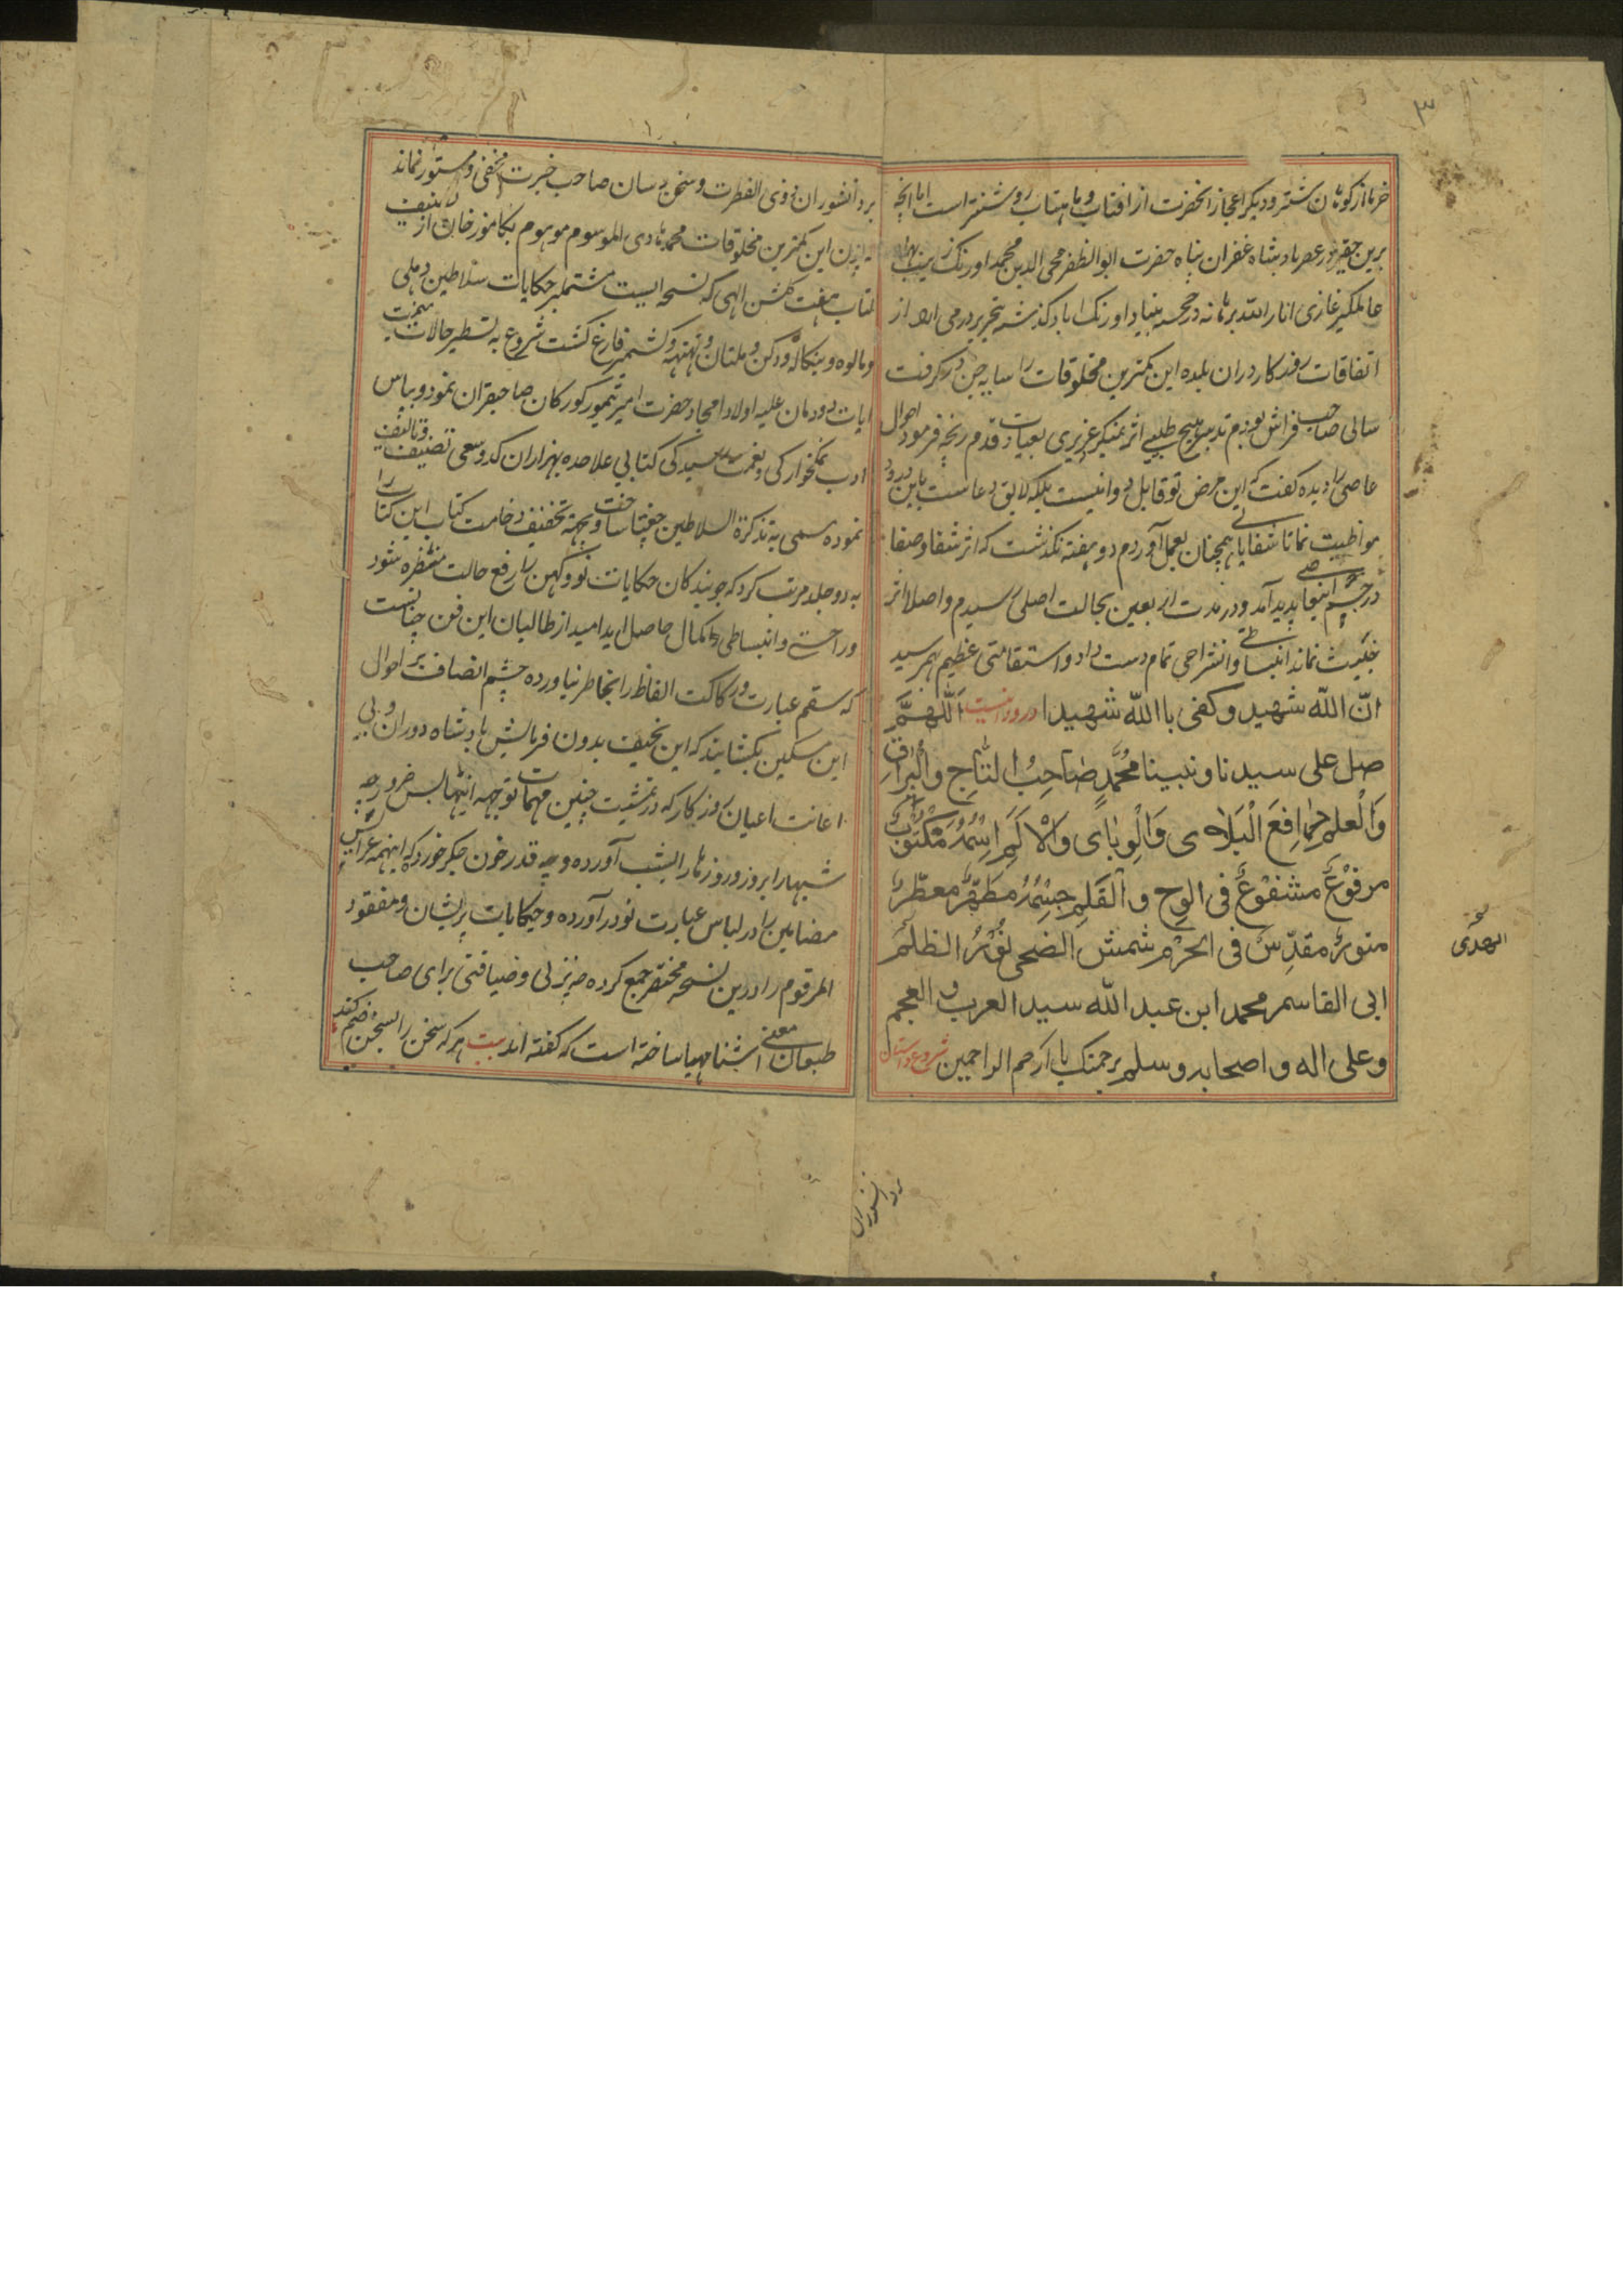 ۳
خرما از کوهان شتر و دیگر اعجاز انحضرت از افتاب و ماهتاب روشنتر است اما انچه
برین حقیر در عصر بادشاه غفران پناه حضرت ابو الظفر محی الدین محمد اورنک زیب بهادر
عالمکیر غازی انار الله برهانه در خجسته بنیاد اورنک اباد کذشته بتحریر درمی ارد از
اتفاقات روزکار دران بلده این کمترین مخلوقات را سایه جن در کرفت
سالی صاحب فراش بودم تدبیر هیچ طبیبی اثر نمیکرد عزیزی بعیادت قدم رنجه فرمود احوال
عاصی را دیده کفت که این مرض تو قابل دوا نیست بلکه لایق دعاست باین درود
مواظبت نما تا شفا یابی همچنان بعمل آوردم دو هفته نکذشت که اثر شفا و صفا
در جسم اینجا پدید آمد و در مدت اربعین بحالت اصلی رسیدم و اصلا اثر
خبیث نماند انبساطی و انشراحی تمام دست داد و استقامتی عظیم بهم رسید
انّ اللّه شهید و کفی با اللّه شهیدا درود اینست اَللّهمَّ
صل علی سیدنا و نبینا مُحَمَّدٍ صَاحِبُ التّاجِ و الْبُرَاقِ
وَالْعلم دافِعَ الْبَلای وَالْوِبای وَالْاَلَم اِسْمُهُ مَکْتُوْبٌ
مرفوْعٌ مشفوْعٌ فی الوح و الْقَلَمِ جِسْمُهُ مطهّرٌ معطّرٌ
منورٌ مقدّسٌ فی الحرَم شمش الضحی نُوْرُ الظلَم
ابی القاسم محمد ابن عبد اللّه سید العرب و العجم
و علی اله و اصحابه و سلم برحمتک یا ارحم الراحمین
الهدی
بر دانشوران ذوی الفطرت و سخن رسان صاحب خبرت مخفی و مستور نماند
این کمترین مخلوقات محمد هادی الموسوم موهوم بکامور خان از تالیف
کتاب هفت کلشن الهی که نسخه ایست مشتملبر حکایات سلاطین دهلی
و مالوه و بنکاله و دکن و ملتان و تهتهه و کشمیر فارغ کشت شروع به تسطیر حالات
ایات دودمان علیه اولاد امجاد حضرت امیر تیمور کورکان صاحبقران نمود و بپاس
ادب نمکخوارکی و نعمت کتابی علاحده بهزاران کد و سعی تصنیف و تالیف
نموده مسمی به تذکرة السلاطین چغتا ساخت و بجهة تخفیف ضخامت کتاب این کتاب را
به دو جلد مرتب کرد که جویندکان حکایات نو و کهن را رفع حالت منتظره شود
و راحتی و انبساطی بکمال حاصل اید امید از طالبان این فن چنانست
که سقم عبارت و رکاکت الفاظ را بخاطر نیاورده چشم انصاف بر احوال
این مسکین بکشایند که این نحیف بدون فرمایش بادشاه دوران و بی
اعانت اعیان روزکار که در تمشیت چنین مهمات توجهه اینها بس ضرور چه
شبها را بروز و روزها را بشب آورده و چه قدر خون جکر خورد که اینهمه عرایس
مضامین را در لباس عبارت نو در آورده و حکایات پریشان و مفقود
المرقوم را درین نسخه مختصر جمع کرده چه نزلی و ضیافتی برای صاحب
طبعان معنی آشنا مهیا ساخته است که کفته اند بیت هر که سخن را بسخن ضم کند
بردانشوران